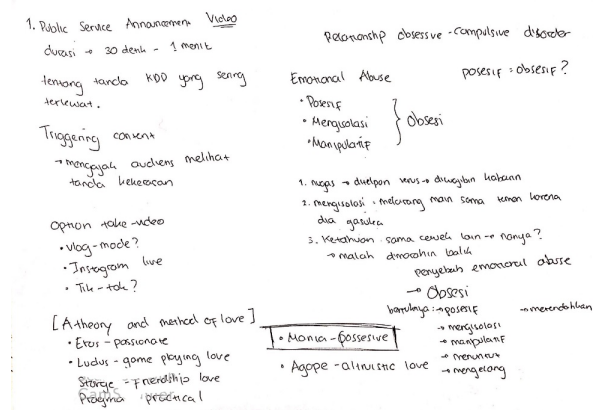 1. Public Service Announcement Video
durasi → 30 detik - 1 menit
tentang tanda KDD yang sering
terlewat.
Triggering content
→ mengajak audiens melihat
tanda kekerasan
Option take-video
• vlog-mode?
• Instagram live
• Tik-tok?
[A theory and method of love]
• Eros - passionate
• Ludus - game playing love
Storge = Friendship love
Pragma practical
Relationship obsessive-compulsive disorder
Emotional Abuse
posesif = obsesif?
• Posesif
• Mengisolasi
• Manipulatif
} Obsesi
1. nugas → ditelpon terus → diwajibin kabarin
2. mengisolasi: melarang main sama temen karena
dia gasuka
3. Ketahuan sama cewek lain → nanya?
→ malah dimarahin balik
penyebab emotional abuse
→ Obsesi
bentuknya: → posesif → merendahkan
→ mengisolasi
→ manipulatif
→ menuntut
→ mengekang
• Mania - possesive
• Agape - altruistic love